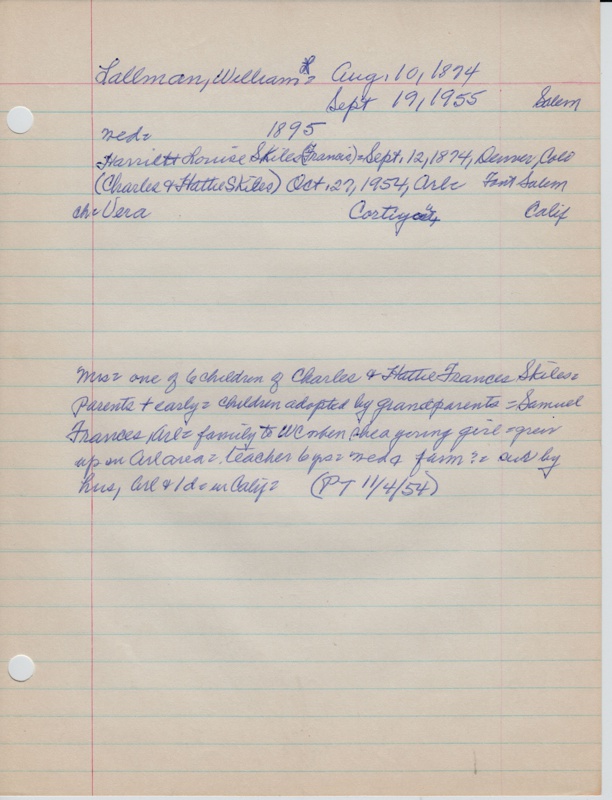 Lallman, William F = Aug. 10, 1874
Sept 19, 1955 Salem
wed= 1895
Harriett Louise Skiles (Francis) = Sept. 12, 1874, Denver, Colo
(Charles & Hattie Skiles) Oct. 27, 1954, Arl= Font Salem
ch= Vera Calif
Mrs= one of 6 children of Charles & Hattie Frances Skiles=
parents + early= children adopted by grandparents = Samuel
Frances, Arl= family to WC when she a young girl = grew
up in Arl area= teacher 6 yrs= wed & farm = sur by
hus, Arl & 1 d= in Calif= (PT 11/4/54)